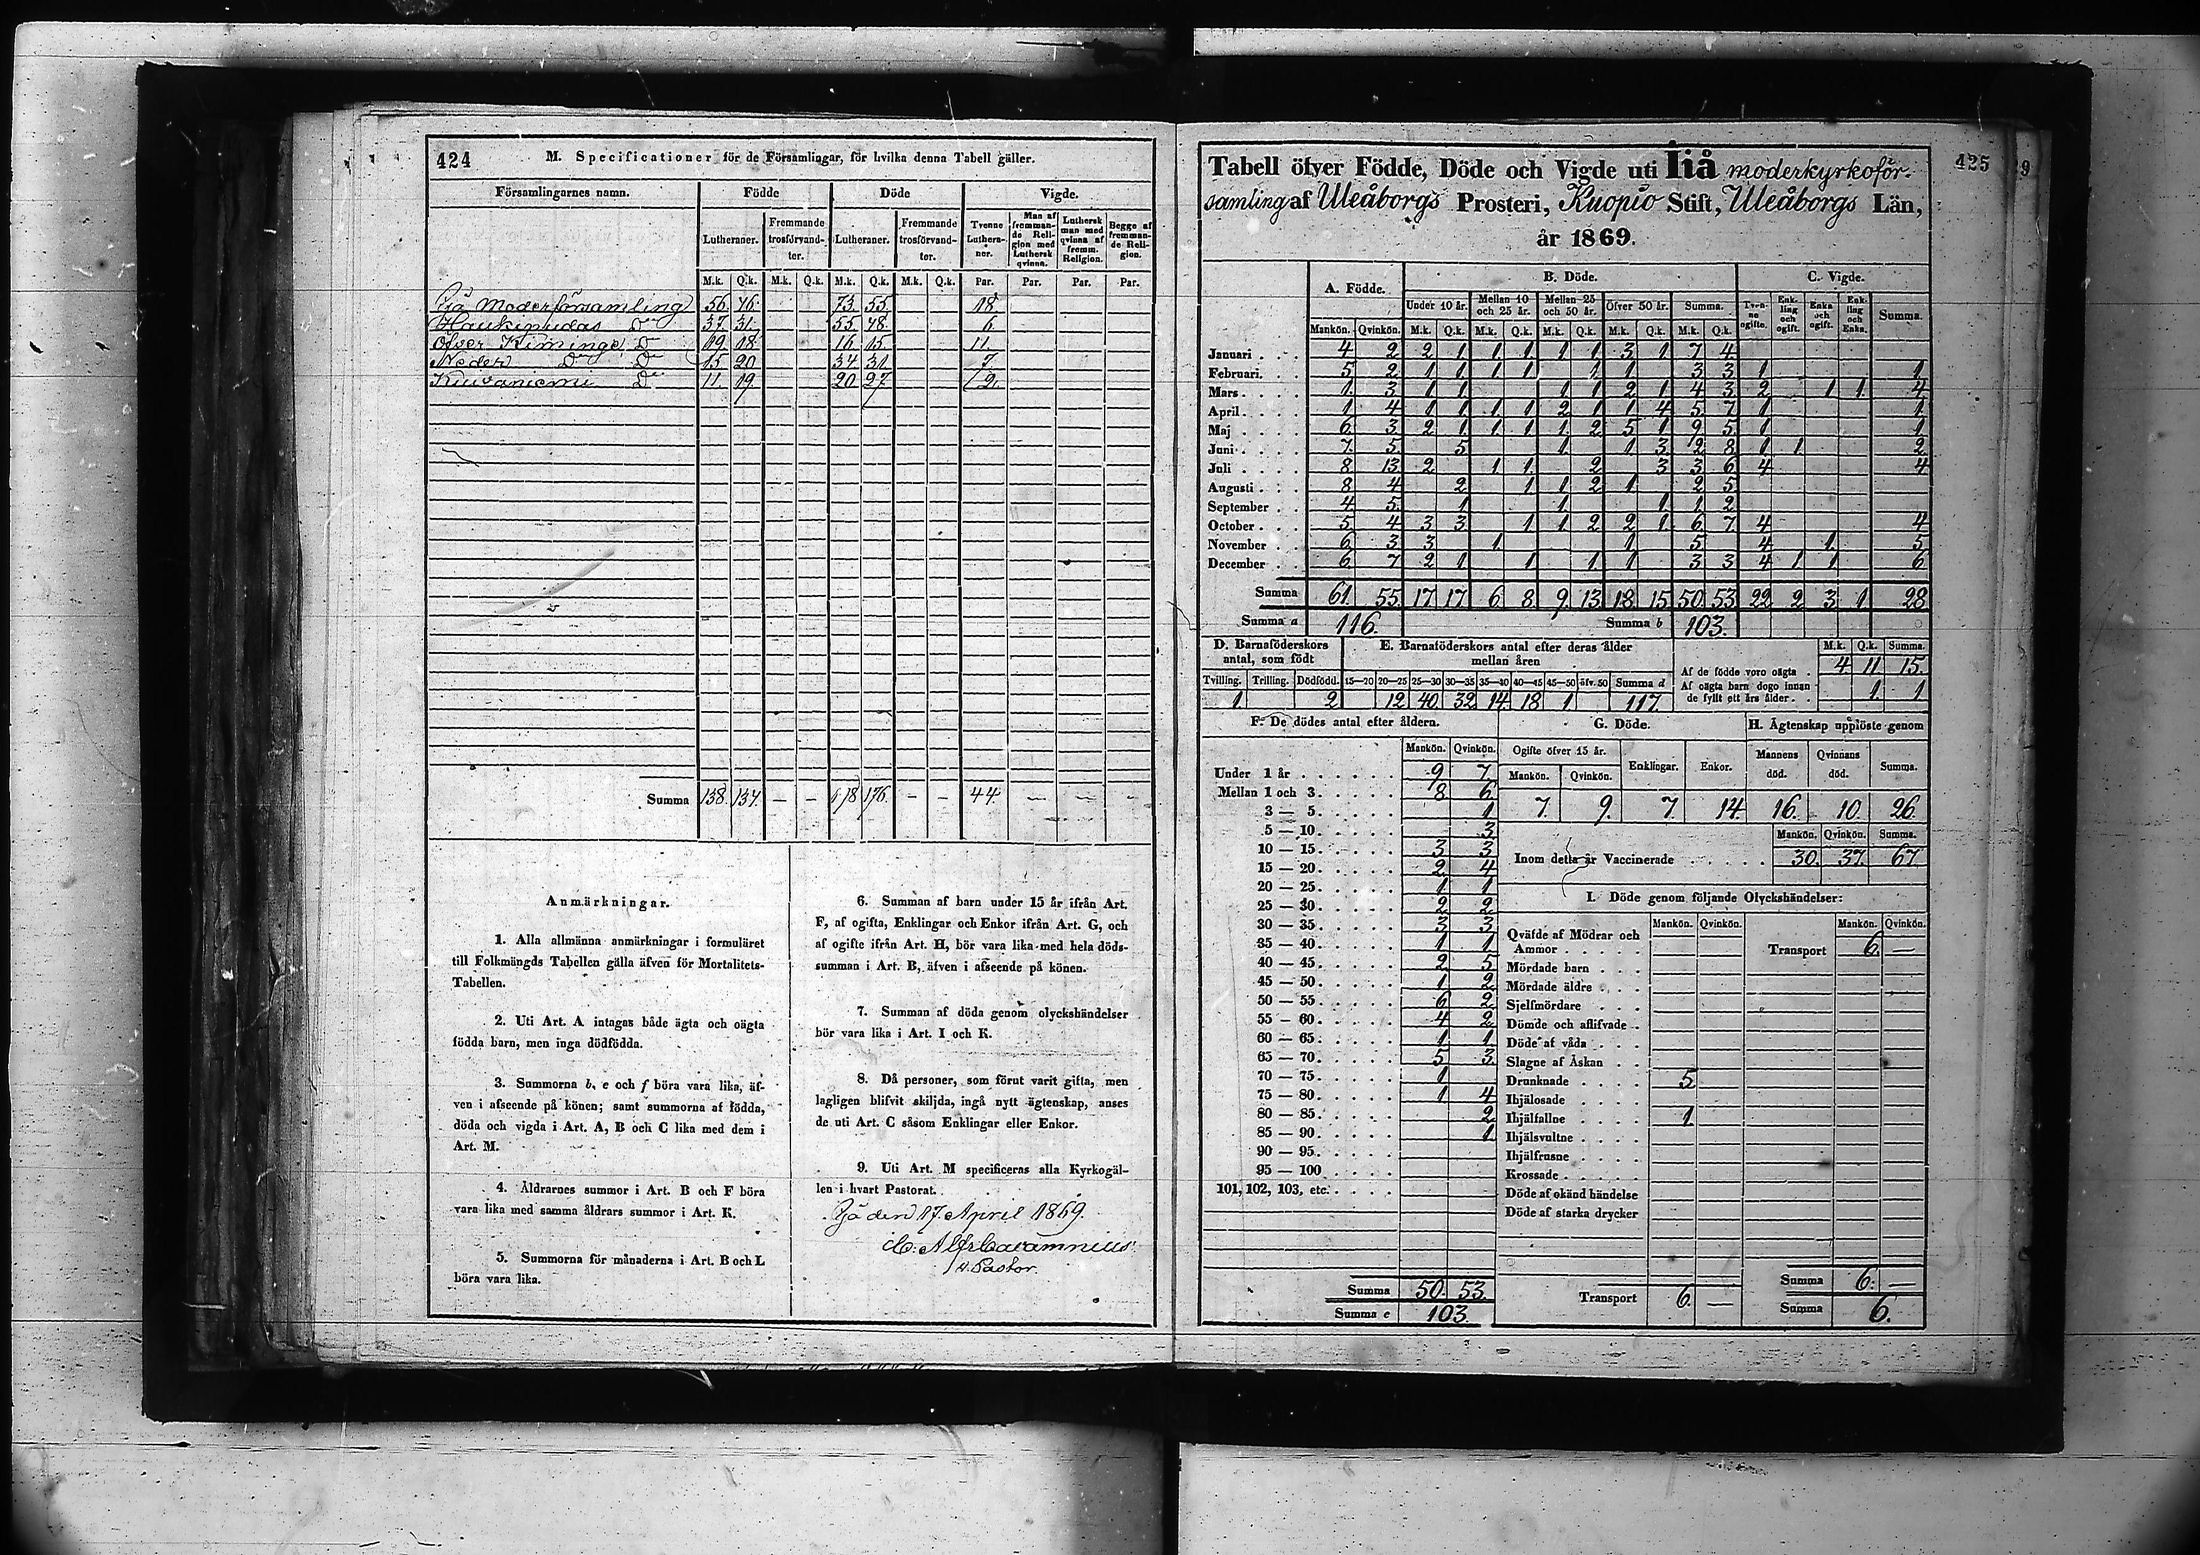 424
M. Specificationer för de Församlingar, för hvilka denna Tabell gäller.
Församlingarnes namn. Födde Döde Vigde.
Lutheraner. Fremmande trosförvandter. Lutheraner. Fremmande trosförvandter. Tvenne Lutheraner. Man af fremmande Religion med Luthersk qvinna. Luthersk man med qvinna af fremm. Religion. Begge af fremmande Religion.
M.k. Q.k. M.k. Q.k. M.k. Q.k. M.k. Q.k. Par. Par. Par. Par.
Ijå Moderförsamling 56. 46. 73. 55. 18.
Haukipudas Do 37. 31. 55. 48. 6.
Öfver Kiminge Do 19 18. 16 15. 11.
Neder Do Do 15. 20 34 31. 7.
Kuivaniemi Do 11. 19. 20 27. 2.
Summa 138. 134. — — 176. — — 44. — — —
Anmärkningar.
1. Alla allmänna anmärkningar i formuläret
till Folkmängds Tabellen gälla äfven för Mortalitets-
Tabellen.
2. Uti Art. A intagas både ägta och oägta
födda barn, men inga dödfödda.
3. Summorna b, e och f böra vara lika, äf-
ven i afseende på könen; samt summorna af födda,
döda och vigda i Art. A, B och C lika med dem i
Art. M.
4. Åldrarnes summor i Art. B och F böra
vara lika med samma åldrars summor i Art. K.
5. Summorna för månaderna i Art. B och L
böra vara lika.
6. Summan af barn under 15 år ifrån Art.
F, af ogifta, Enklingar och Enkor ifrån Art. G, och
af ogifte ifrån Art. H, bör vara lika med hela döds-
summan i Art. B, äfven i afseende på könen.
7. Summan af döda genom olyckshändelser
bör vara lika i Art. I och K.
8. Då personer, som förut varit gifta, men
lagligen blifvit skiljda, ingå nytt ägtenskap, anses
de uti Art. C såsom Enklingar eller Enkor.
9. Uti Art. M specificeras alla Kyrkogäl-
len i hvart Pastorat.
Ijå den 17. April 1869.
v. Pastor.
425
9
Tabell öfver Födde, Döde och Vigde uti Iiå moderkyrkoför-
samling af Uleåborgs Prosteri, Kuopio Stift, Uleåborgs Län,
år 1869.
A. Födde. B. Döde. C. Vigde.
Under 10 år. Mellan 10 och 25 år. Mellan 25 och 50 år. Öfver 50 år. Summa. Tvenne ogifte. Enkling och ogift. Enka och ogift. Enkling och Enka. Summa.
Mankön. Qvinkön. M.k. Q.k. M.k. Q.k. M.k. Q.k. M.k. Q.k. M.k. Q.k.
Januari 4 2 2 1 1 1 1 1 3 1 7 4
Februari 5 2 1 1 1 1 1 1 3 3 1 1
Mars 1 3 1 1 1 1 2 1 4 3 2 1 1 4
April 1 4 1 1 1 1 2 1 1 4 5 7 1 1
Maj 6 3 2 1 1 1 1 2 5 1 9 5 1 1
Juni 7 5 5 1 1 3 2 8 1 1 2
Juli 8 13 2 1 1 2 3 3 6 4 4
Augusti 8 4 2 1 1 2 1 2 5
September 4 5 1 1 1 1 2
October 5 4 3 3 1 1 2 2 1 6 7 4 4
November 6 3 3 1 1 5 4 1 5
December 6 7 2 1 1 1 1 3 3 4 1 1 6
Summa 61. 55. 17 17 6. 8 9. 13. 18. 15. 50. 53. 22 2 3 1 28
Summa a 116. Summa b 103.
D. Barnaföderskors antal, som födt E. Barnaföderskors antal efter deras ålder mellan åren M.k. Q.k. Summa.
Af de födde voro oägta 4. 11 15.
Af oägta barn dogo innan de fyllt ett års ålder 1 1
Tvilling. Trilling. Dödfödd. 15—20 20—25 25—30 30—35 35—40 40—45 45—50 öfv. 50 Summa d
1 2 12 40 32 14 18 1 117.
F. De dödes antal efter åldern. G. Döde. H. Ägtenskap upplöste genom
Mankön. Qvinkön. Ogifte öfver 15 år. Enklingar. Enkor. Mannens död. Qvinnans död. Summa.
Mankön. Qvinkön.
7. 9. 7. 14. 16. 10. 26.
Mankön. Qvinkön. Summa.
Inom detta år Vaccinerade 30. 37. 67
Under 1 år 9 7
Mellan 1 och 3 8 6
3 — 5 1
5 — 10 3
10 — 15 3 3
15 — 20 2 4
20 — 25 1 1
25 — 30 2 2
30 — 35 3 3
35 — 40 1 1
40 — 45 2 5
45 — 50 1 2
50 — 55 6 2
55 — 60 4 2
60 — 65 1 1
65 — 70 5 3
70 — 75 1
75 — 80 1 4
80 — 85 2
85 — 90 1
90 — 95
95 — 100
101, 102, 103, etc.
Summa 50. 53.
Summa e 103.
I. Döde genom följande Olyckshändelser:
Mankön. Qvinkön. Mankön. Qvinkön.
Qväfde af Mödrar och Ammor
Transport 6. —
Mördade barn
Mördade äldre
Sjelfmördare
Dömde och aflifvade
Döde af våda
Slagne af Åskan
Drunknade 5
Ihjälosade
Ihjälfallne 1
Ihjälsvultne
Ihjälfrusne
Krossade
Döde af okänd händelse
Döde af starka drycker
Transport 6. —
Summa 6. —
Summa 6.